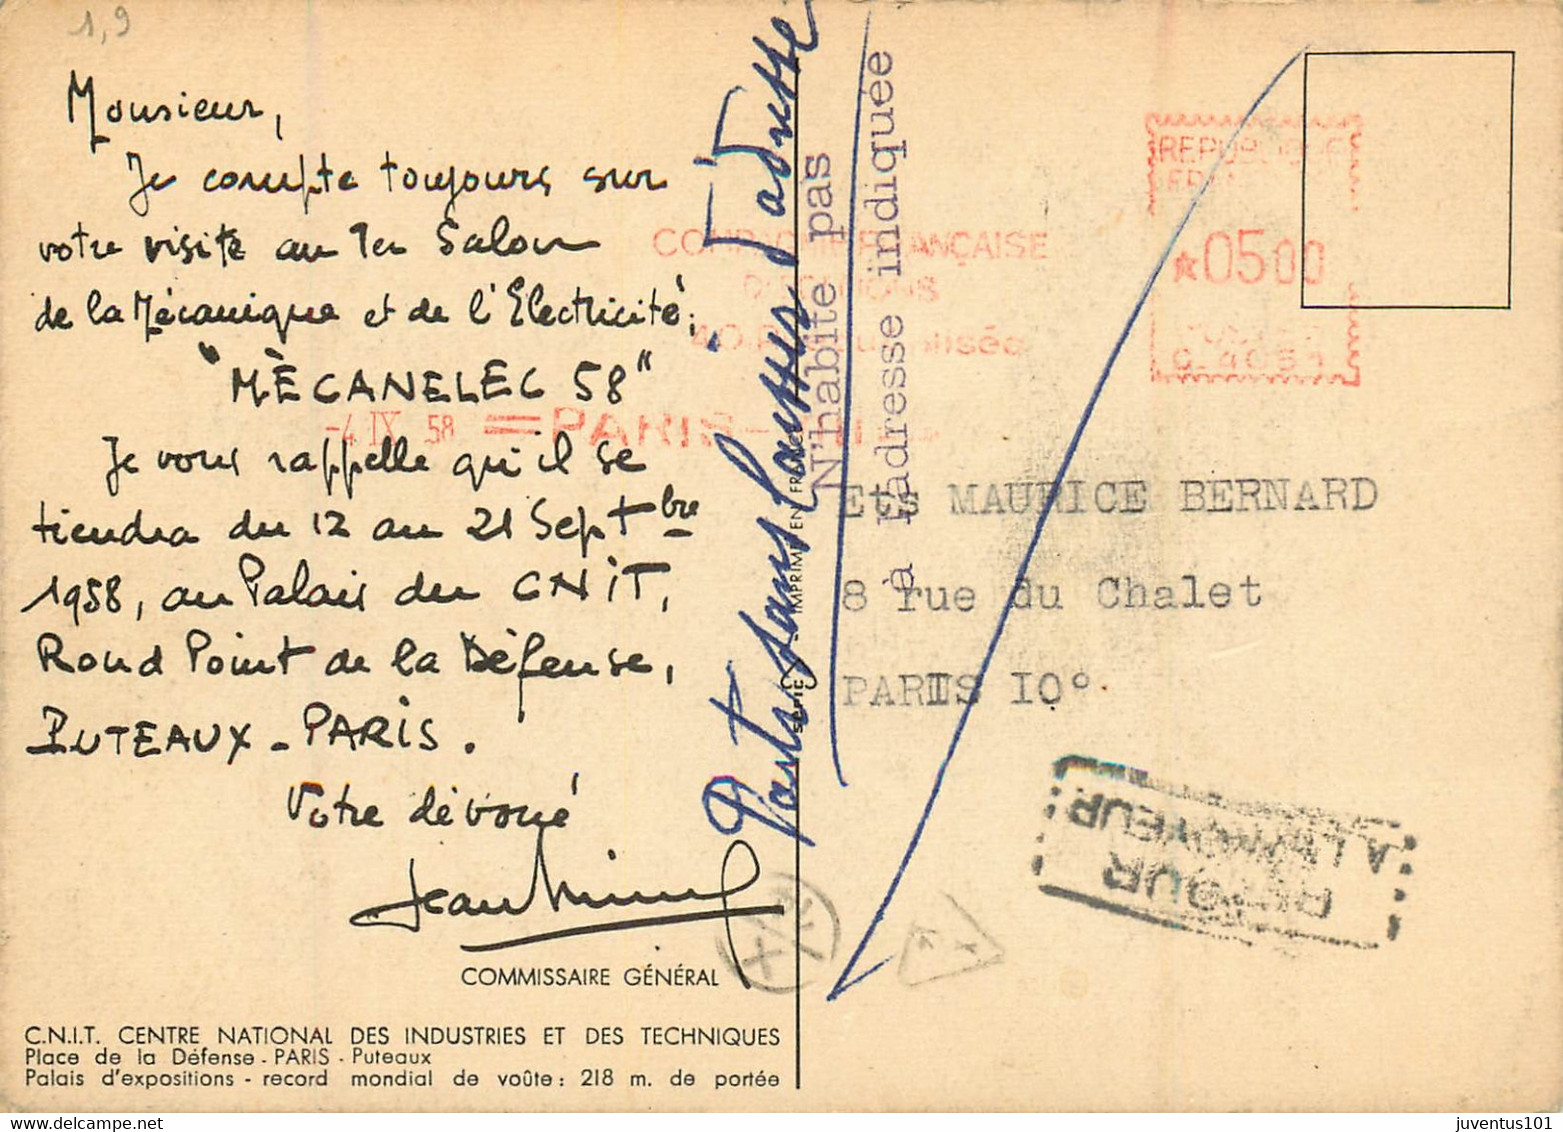 1,9
Monsieur,
Je compte toujours sur
votre visite au 1er Salon
de la Mécanique et de l'Electricité,
"MÈCANELEC 58"
Je vous rappelle qu'il se
tiendra du 12 au 21 Septbre
1958, au Palais du CNIT,
Rond Point de la Défense,
PUTEAUX - PARIS.
Votre dévoué
COMMISSAIRE GÉNÉRAL
C.N.I.T. CENTRE NATIONAL DES INDUSTRIES ET DES TECHNIQUES
Place de la Défense - PARIS - Puteaux
Palais d'expositions - record mondial de voûte : 218 m. de portée
-4 IX 58 = PARIS
FRANÇAISE
REPUBLIQUE
*0500
Parti sans laisser d'adresse
N'habite pas
à l'adresse indiquée
IMPRIMÉ EN
Ets MAURICE BERNARD
8 rue du Chalet
PARIS 10°
RETOUR
A L'ENVOYEUR
juventus101